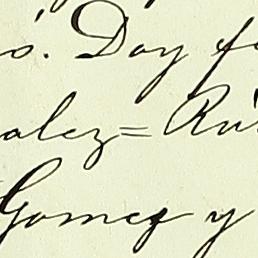 s. Doy f
alez= Ru
Gomez y